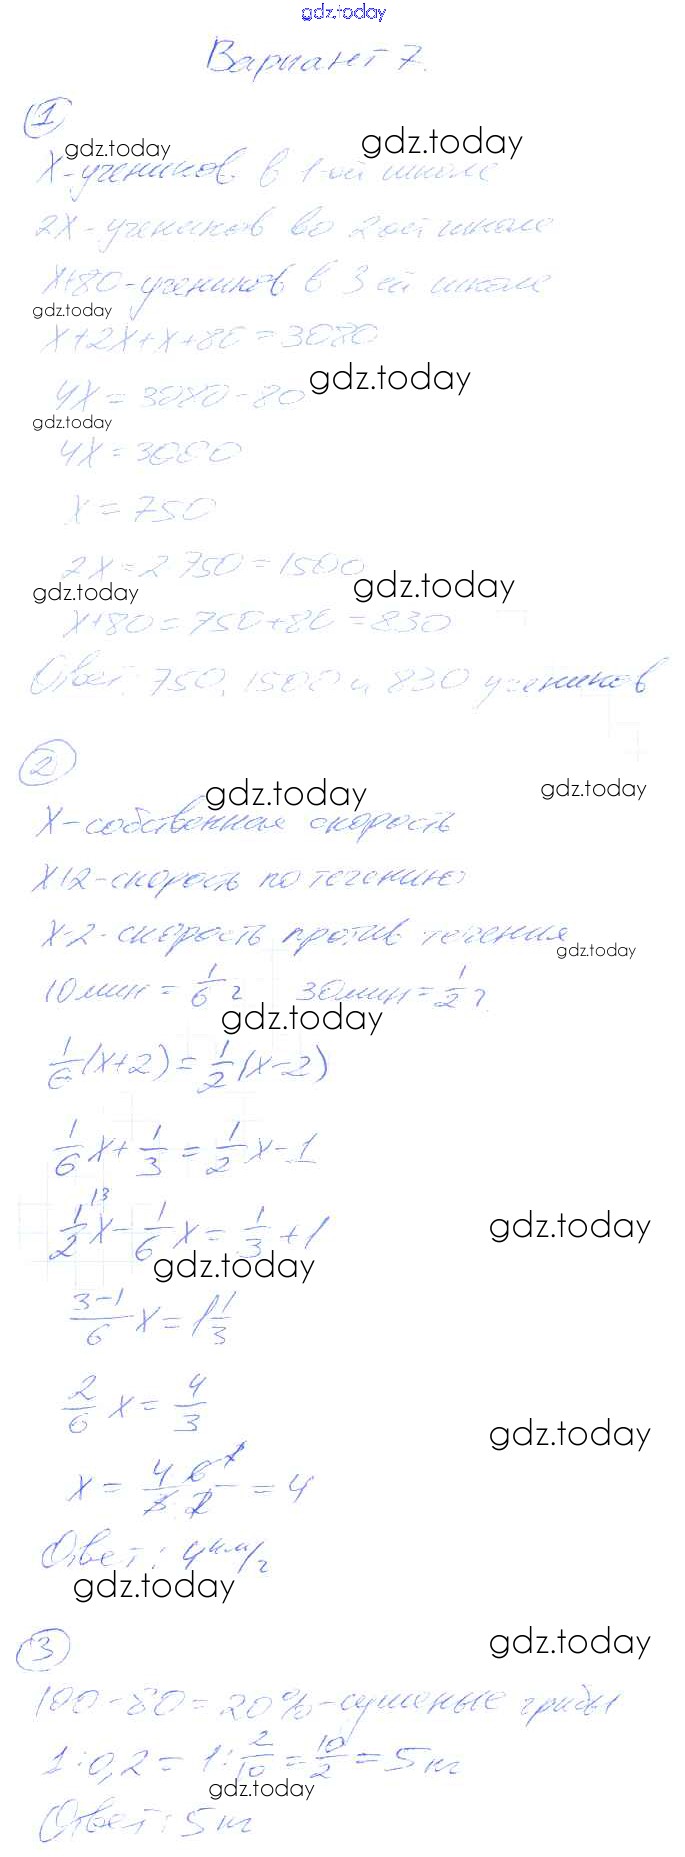 gdz.today
Вариант 7.
1
gdz.today gdz.today
x-учеников в 1-ой школе
2x-учеников во 2 ой школе
x+80-учеников в 3 ей школе
gdz.today
x+2x+x+80=3080
gdz.today
4x=3080-80
gdz.today
4x=3000
x=750
2x=2·750=1500
gdz.today gdz.today
x+80=750+80=830
Ответ: 750, 1500 и 830 учеников
2
gdz.today gdz.today
x-собственная скорость
x+2-скорость по течению
x-2-скорость против течения
gdz.today
10 мин = 1/6 ч 30 мин = 1/2 ч.
gdz.today
1/6(x+2)=1/2(x-2)
1/6x+1/3=1/2x-1
1/2x-1/6x=1/3+1
gdz.today
gdz.today
3-1/6 x=1 1/3
2/6 x=4/3
gdz.today
x=4·6/3·2=4
Ответ: 4 км/ч
gdz.today
3
gdz.today
100-80=20%-сушеные грибы
1:0,2=1:2/10=10/2=5 кг
gdz.today
Ответ: 5 кг